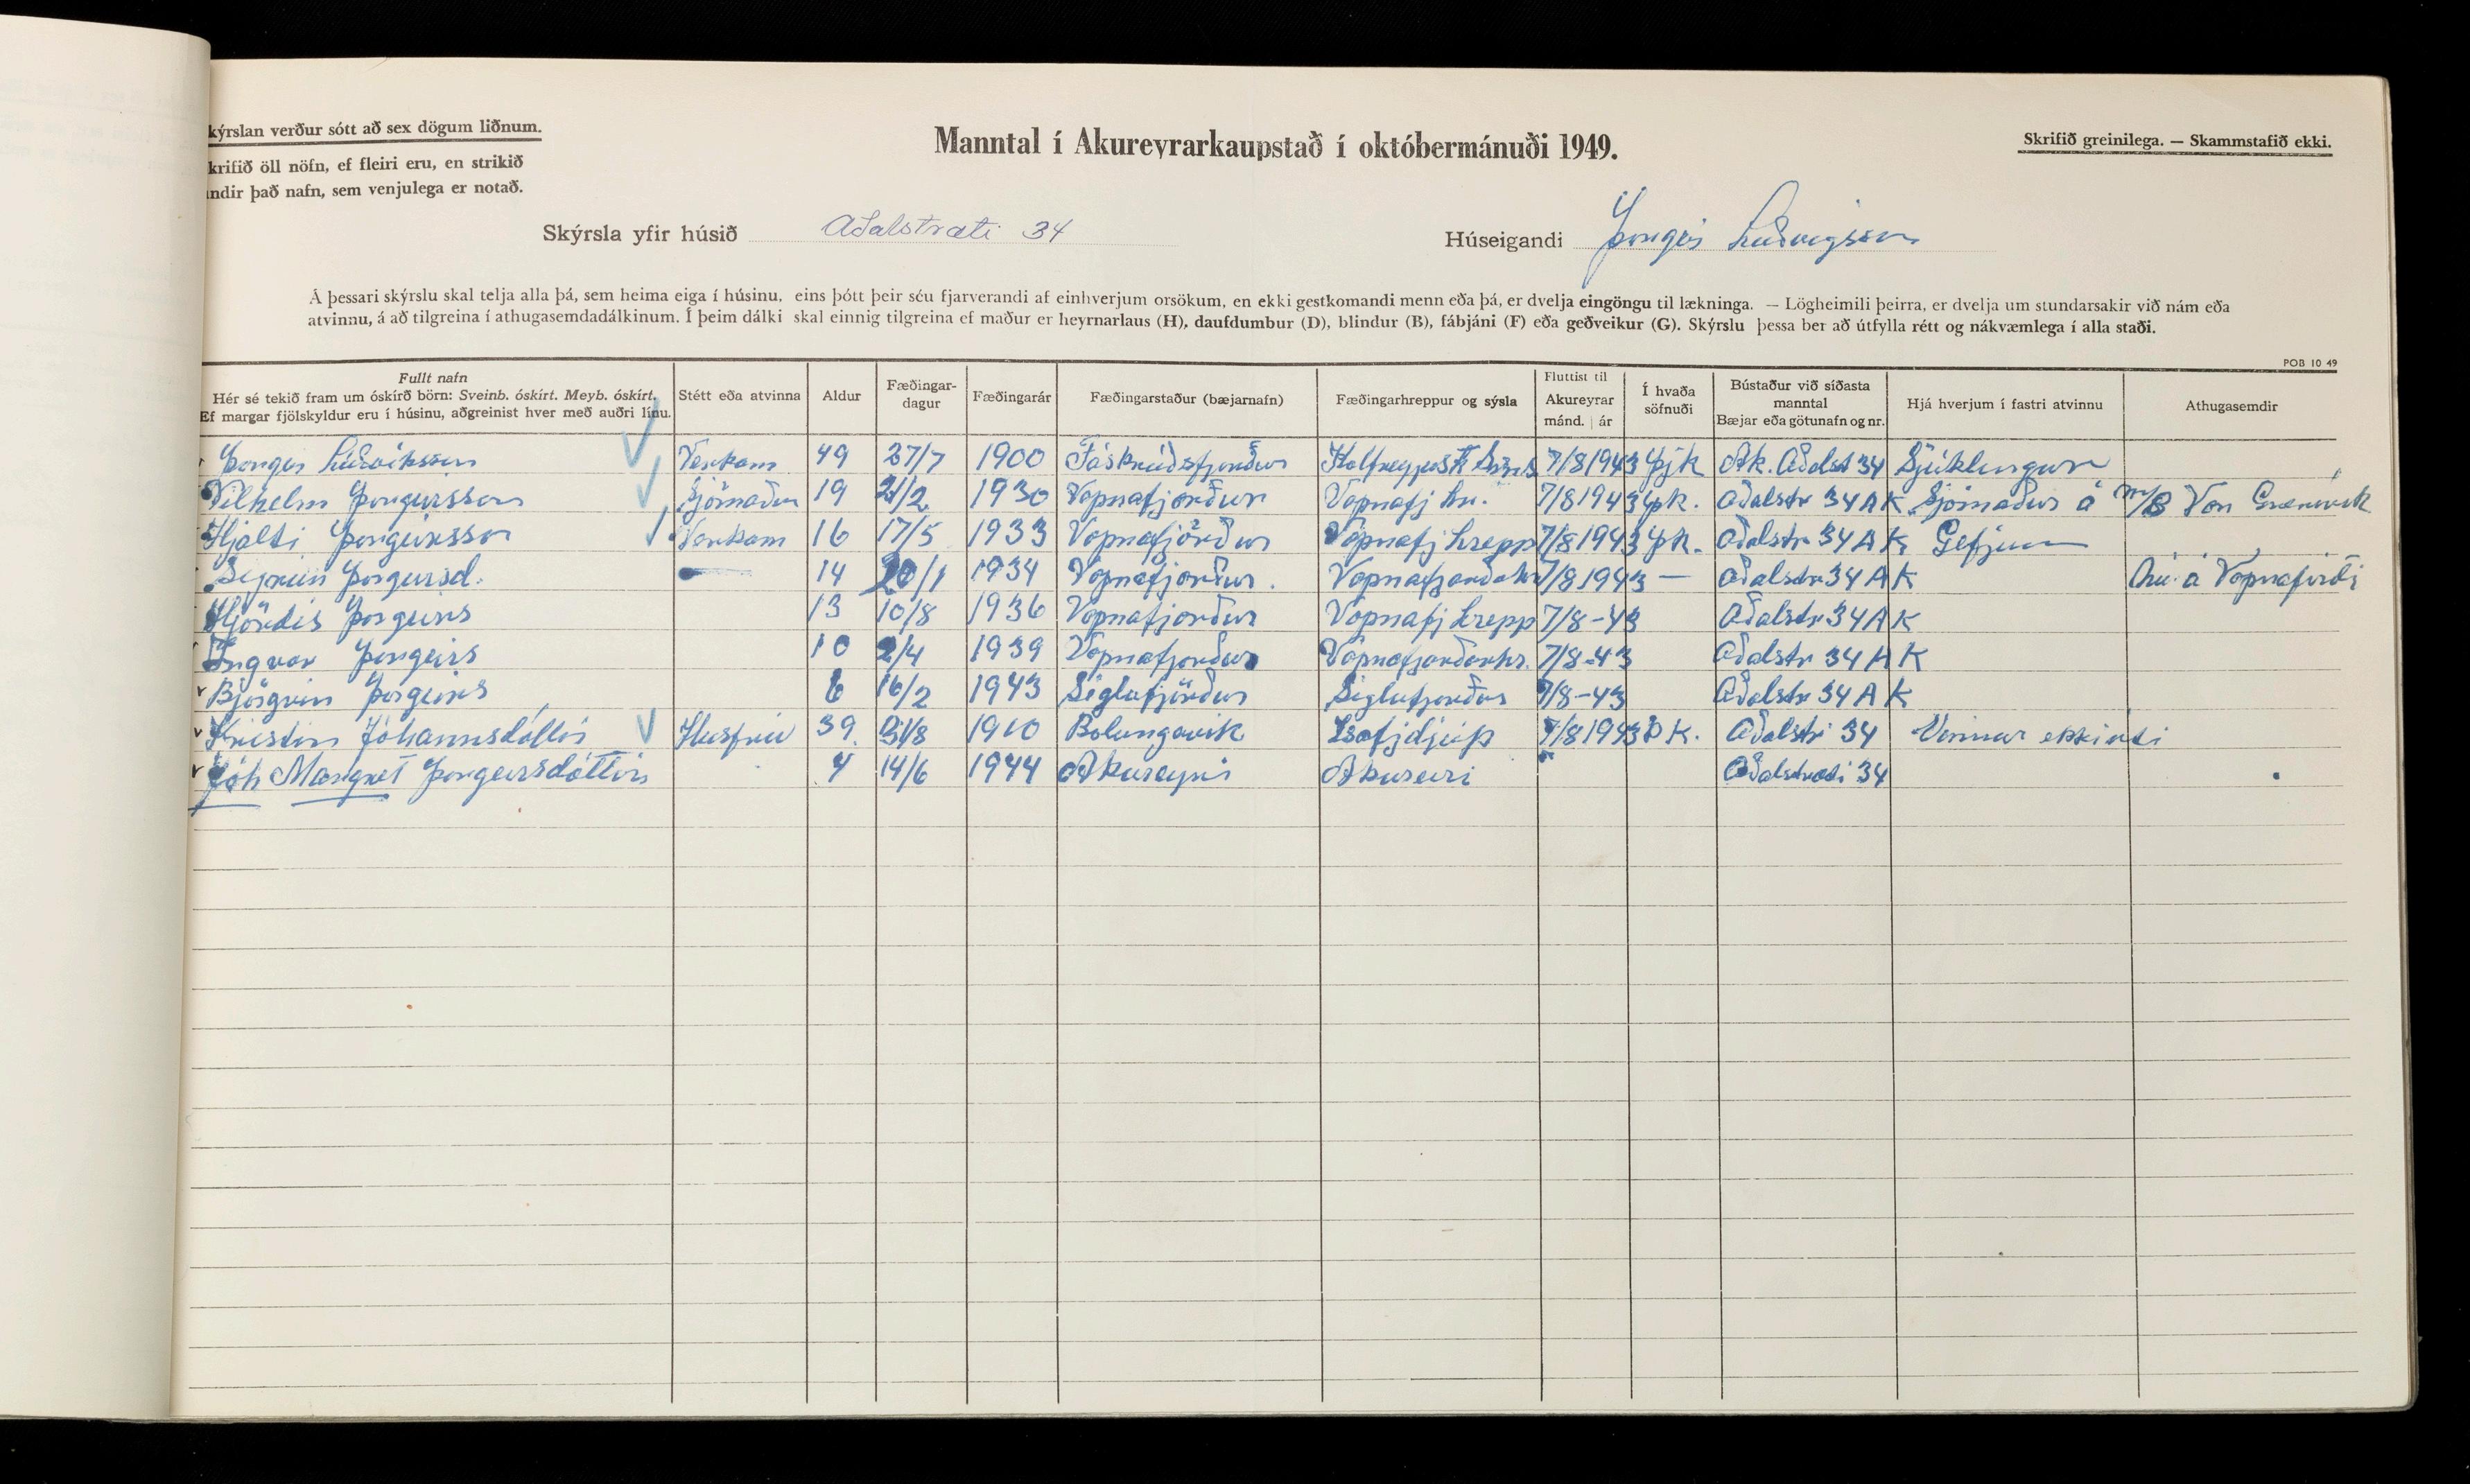 kýrslan verður sótt að sex dögum liðnum.
krifið öll nöfn, ef fleiri eru, en strikið
ndir það nafn, sem venjulega er notað.
Manntal í Akureyrarkaupstað í októbermánuði 1949.
Skrifið greinilega. — Skammstafið ekki.
Skýrsla yfir húsið Aðalstræti 34 Húseigandi Þorgeir Lúðvigsson
Á þessari skýrslu skal telja alla þá, sem heima eiga í húsinu, eins þótt þeir séu fjarverandi af einhverjum orsökum, en ekki gestkomandi menn eða þá, er dvelja eingöngu til lækninga. — Lögheimili þeirra, er dvelja um stundarsakir við nám eða
atvinnu, á að tilgreina í athugasemdadálkinum. Í þeim dálki skal einnig tilgreina ef maður er heyrnarlaus (H), daufdumbur (D), blindur (B), fábjáni (F) eða geðveikur (G). Skýrslu þessa ber að útfylla rétt og nákvæmlega í alla staði.
POB 10 49
Fullt nafn
Hér sé tekið fram um óskírð börn: Sveinb. óskírt. Meyb. óskírt.
Ef margar fjölskyldur eru í húsinu, aðgreinist hver með auðri línu.
Stétt eða atvinna
Aldur
Fæðingar-
dagur
Fæðingarár
Fæðingarstaður (bæjarnafn)
Fæðingarhreppur og sýsla
Fluttist til
Akureyrar
mánd. | ár
Í hvaða
söfnuði
Bústaður við síðasta
manntal
Bæjar eða götunafn og nr.
Hjá hverjum í fastri atvinnu
Athugasemdir
Þorgeir Lúðviksson Verkam 49 27/7 1900 Fáskrúðsfjörður 7/8 1943 Þjk Ak. Aðalst 34 Sjúklingur
Vilhelm Þorgeirsson Sjómaður 19 21/2 1930 Vopnafjörður Vopnafj hr. 7/8 1943 Þk. Aðalstr 34 AK Sjómaður á m/B Von Grenivík
Hjalti Þorgeirsson Verkam 16 17/5 1933 Vopnafjörður Vopnafj hrepp 7/8 1943 Þk. Aðalstr 34 AK Gefjun
Sigrún Þorgeirsd. 14 20/1 1934 Vopnafjörður. Vopnafjarðahr 7/8 1943 — Aðalstr 34 AK Nú á Vopnafirði
Hjördís Þorgeirs 13 10/8 1936 Vopnafjörður Vopnafj hrepp 7/8-43 Aðalstr 34 AK
Ingvar Þorgeirs 10 2/4 1939 Vopnafjörður Vopnafjarðarhr. 7/8-43 Aðalstr 34 AK
Björgvin Þorgeirs 6 16/2 1943 Siglufjörður Siglufjorður 7/8-43 Aðalstr 34 AK
Kristín Jóhannsdóttir Húsfrú 39 31/8 1910 Bolungavík Isafjdjúp 7/8 1943 Þ K. Aðalstr 34 Vinnur ekki úti
Jóh Margret Þorgeirsdóttir 4 14/6 1944 Akureyri Akureiri Aðalstræti 34